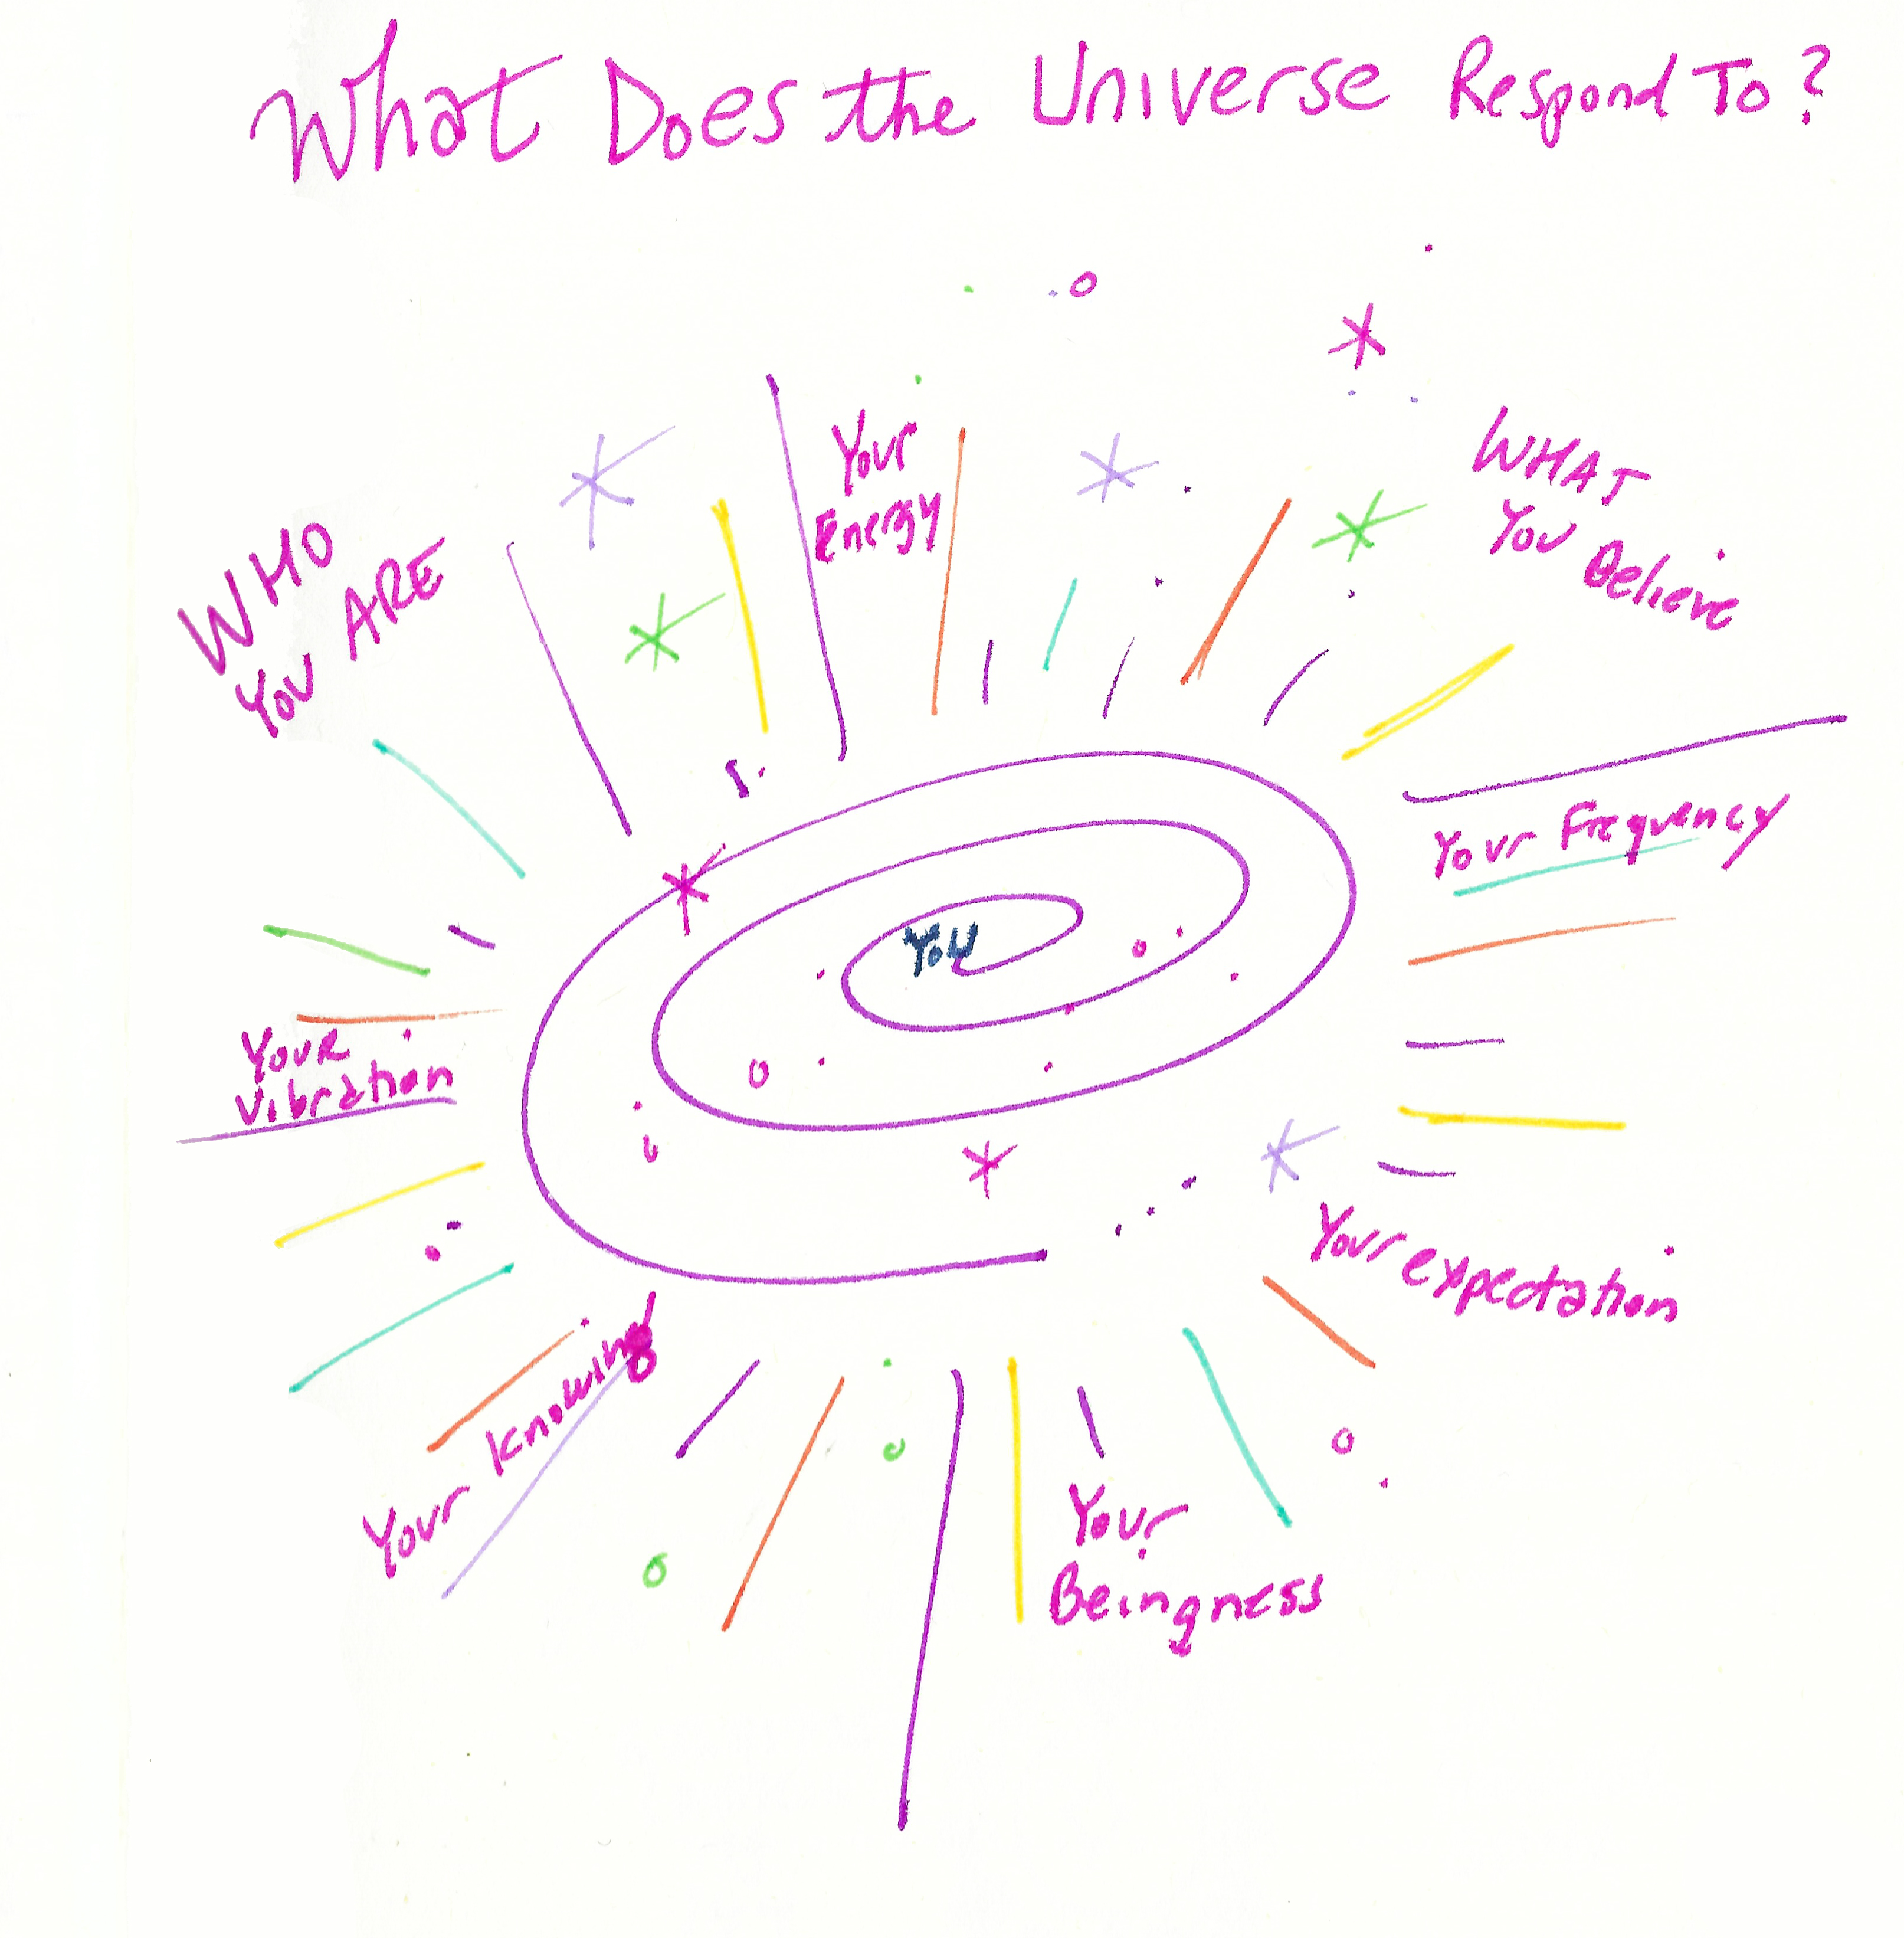 What Does the Universe Respond To?
Your
Energy
WHAT
You Believe
WHO
You ARE
Your Frequency
You
Your
Vibration
Your expectation
Your Knowing
Your
Beingness